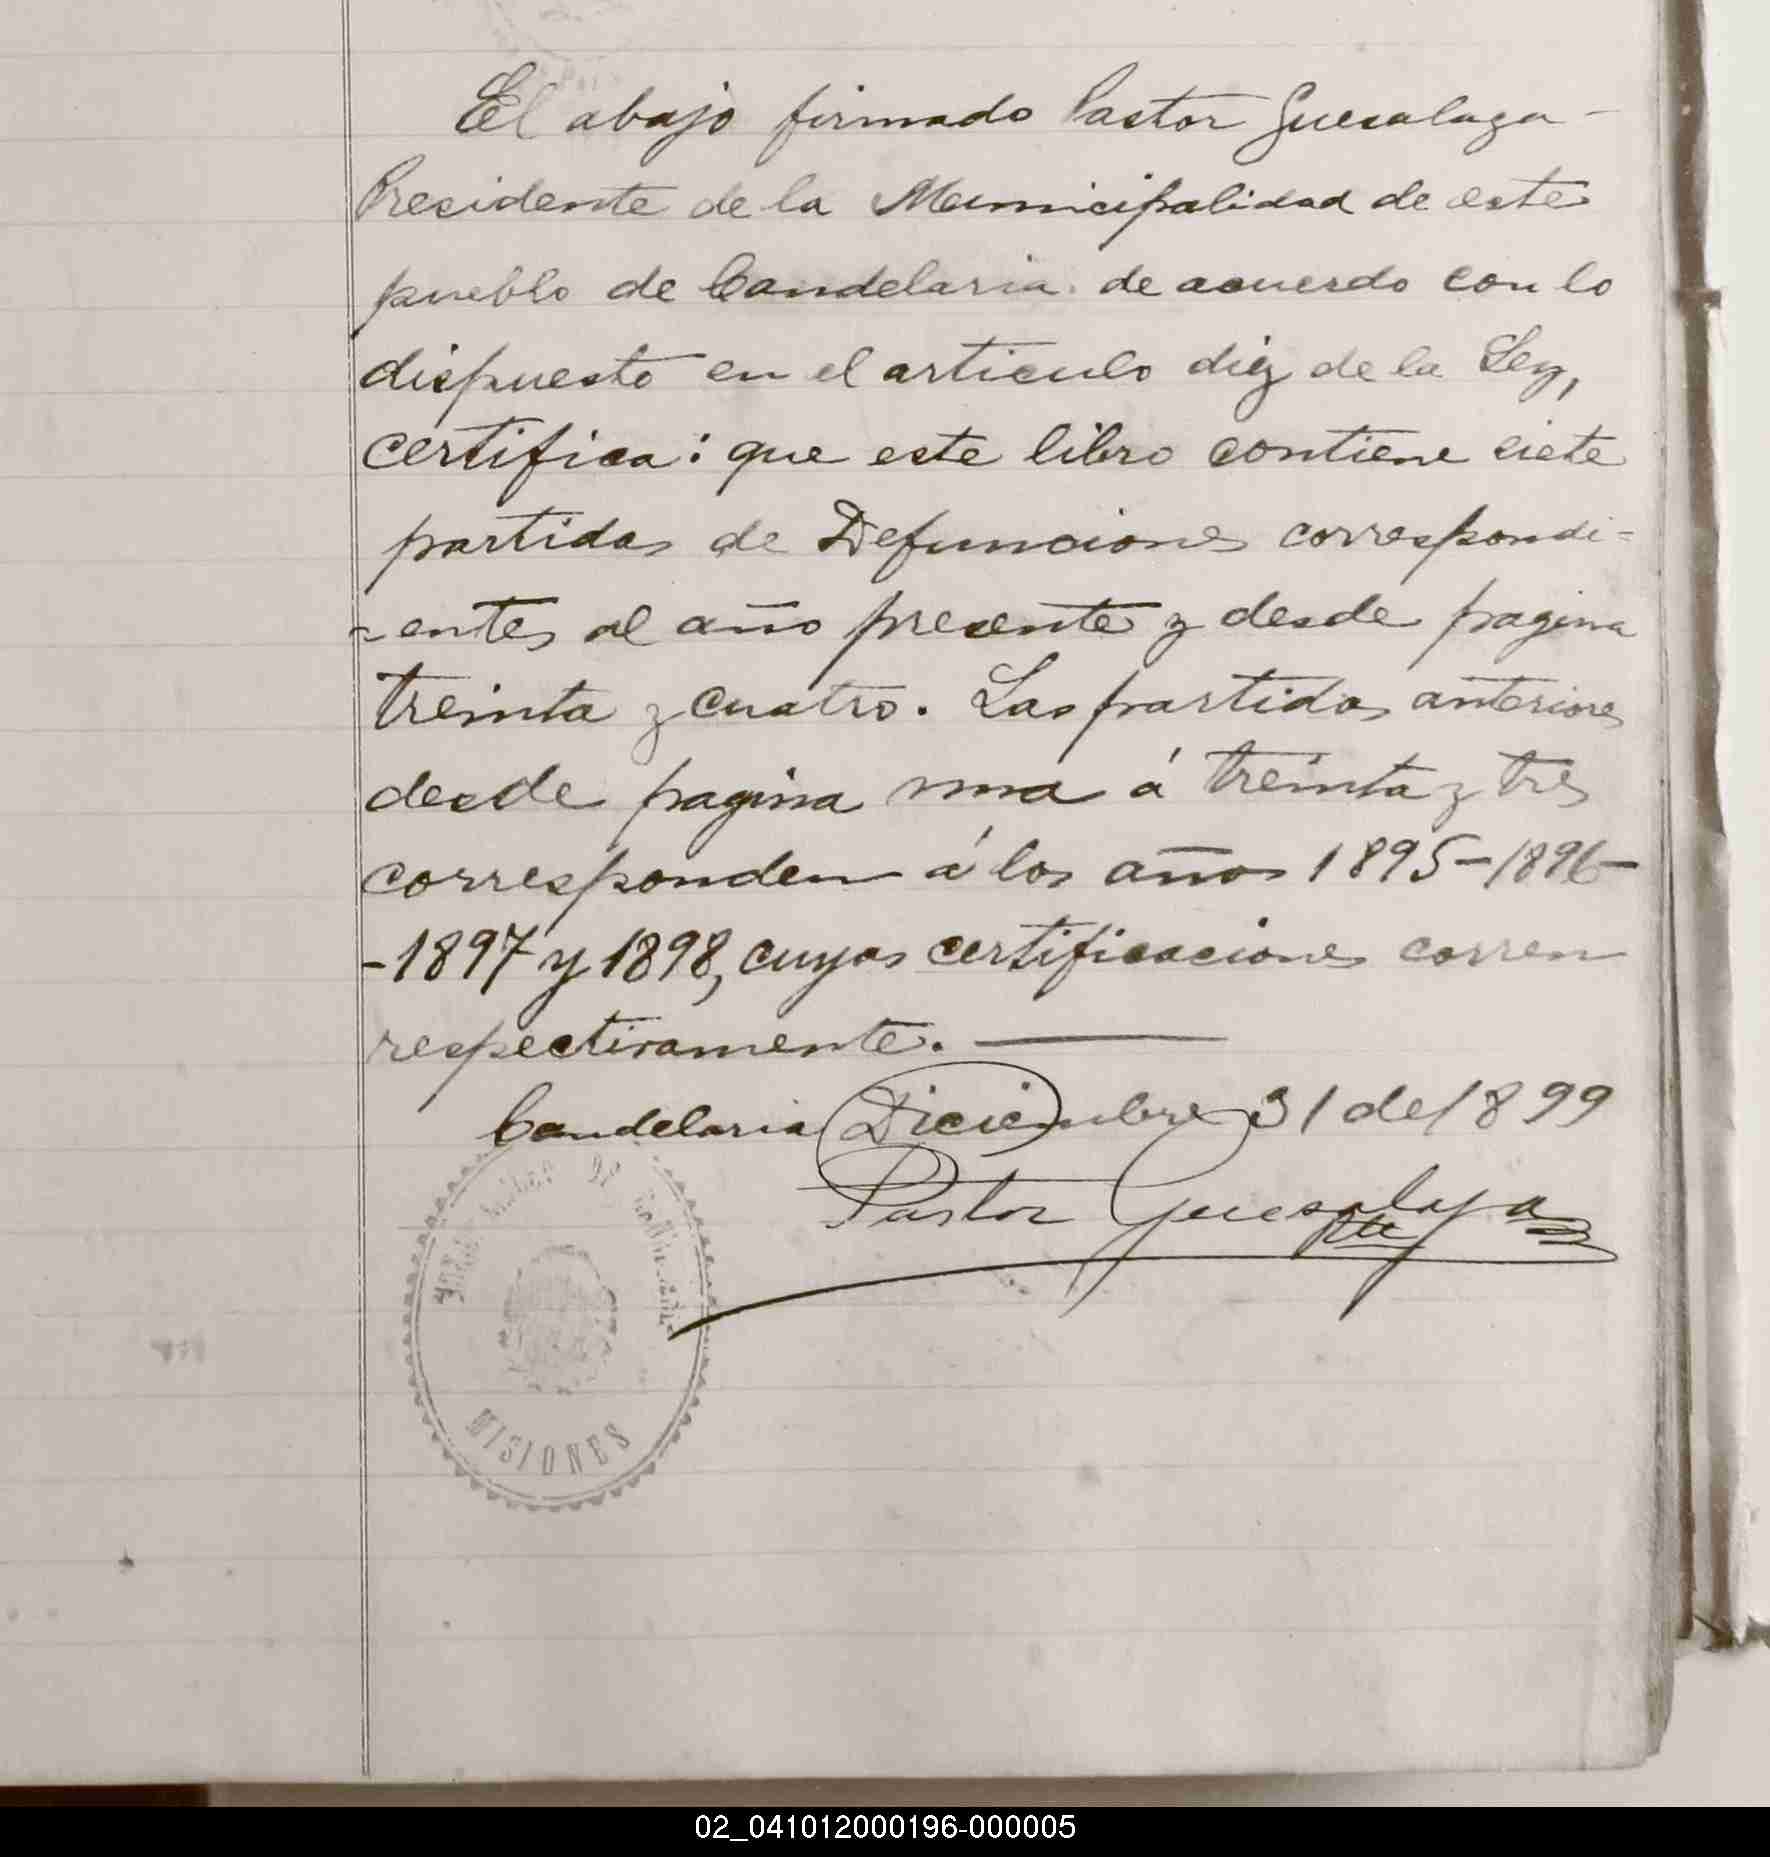 El abajo firmado Pastor Guesalaga -
Presidente de la Municipalidad de este
pueblo de Candelaria de acuerdo con lo
dispuesto en el articulo diez de la Ley,
certifica: que este libro contiene siete
partidas de Defunciones correspondi=
=entes al año presente y desde pagina
treinta y cuatro. Las partidas anteriores
desde pagina una á treinta y tres
corresponden á los años 1895-1896-
-1897 y 1898, cuyas certificaciones corren
respectivamente. —
Candelaria Diciembre 31 de 1899
Pastor Guesalaga
Pte
MISIONES
02_041012000196-000005